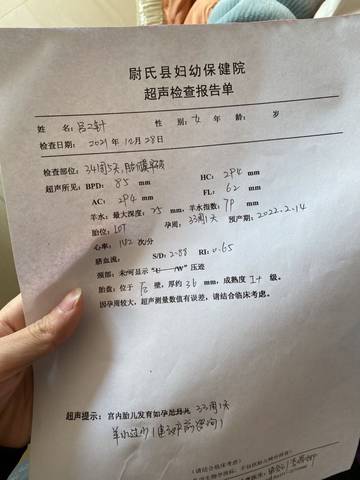 尉氏县妇幼保健院
超声检查报告单
姓 名: 吕 性 别: 女 年 龄: 岁
检查日期: 2021年12月28日
检查部位: 34周5天, 胎膜早破
超声所见: BPD: 85 mm HC: 294 mm
AC: 294 mm FL: 62 mm
羊水: 最大深度: 25 mm, 羊水指数: 79 mm
胎位: LOT 孕周: 33周1天 预产期: 2022.2.14
心率: 142 次/分
脐血流: S/D: 2.88 RI: 0.65
颈部: 未/可显示 "U" /W" 压迹
胎盘: 位于 后 壁, 厚约 36 mm, 成熟度 I+ 级。
因孕周较大, 超声测量数值有误差, 请结合临床考虑。
超声提示: 宫内胎儿发育如孕 33周1天
羊水过少(建议
(请结合临床考虑)